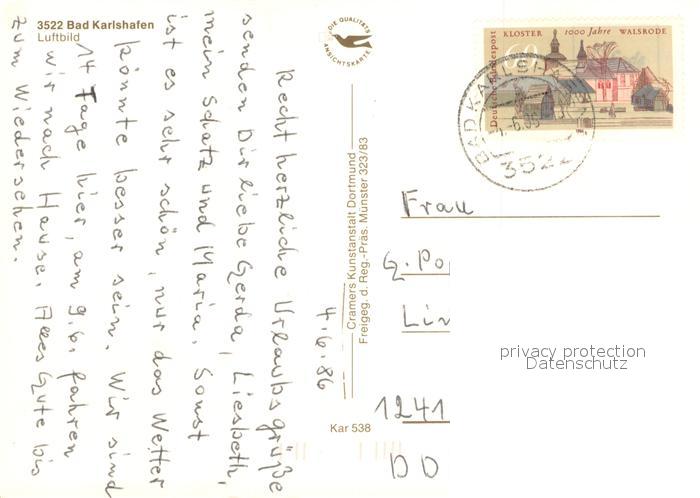 3522 Bad Karlshafen
Luftbild
DIE QUALITÄTS
ANSICHTSKARTE
4.6.86
Recht herzliche Urlaubsgrüße
senden Dir liebe Gerda, Liesbeth,
mein Schatz und Maria. Sonst
ist es sehr schön, nur das Wetter
könnte besser sein. Wir sind
14 Tage hier, am 9.6. fahren
wir nach Hause. Alles Gute bis
zum Wiedersehen.
Cramers Kunstanstalt Dortmund
Freigeg. d. Reg.-Präs. Münster 323/83
Kar 538
KLOSTER 1000 Jahre WALSRODE
Deutsche Bundespost
60
BAD KARLSHAFEN
3522
Frau
G. Po
Lin
1241
DD
privacy protection
Datenschutz